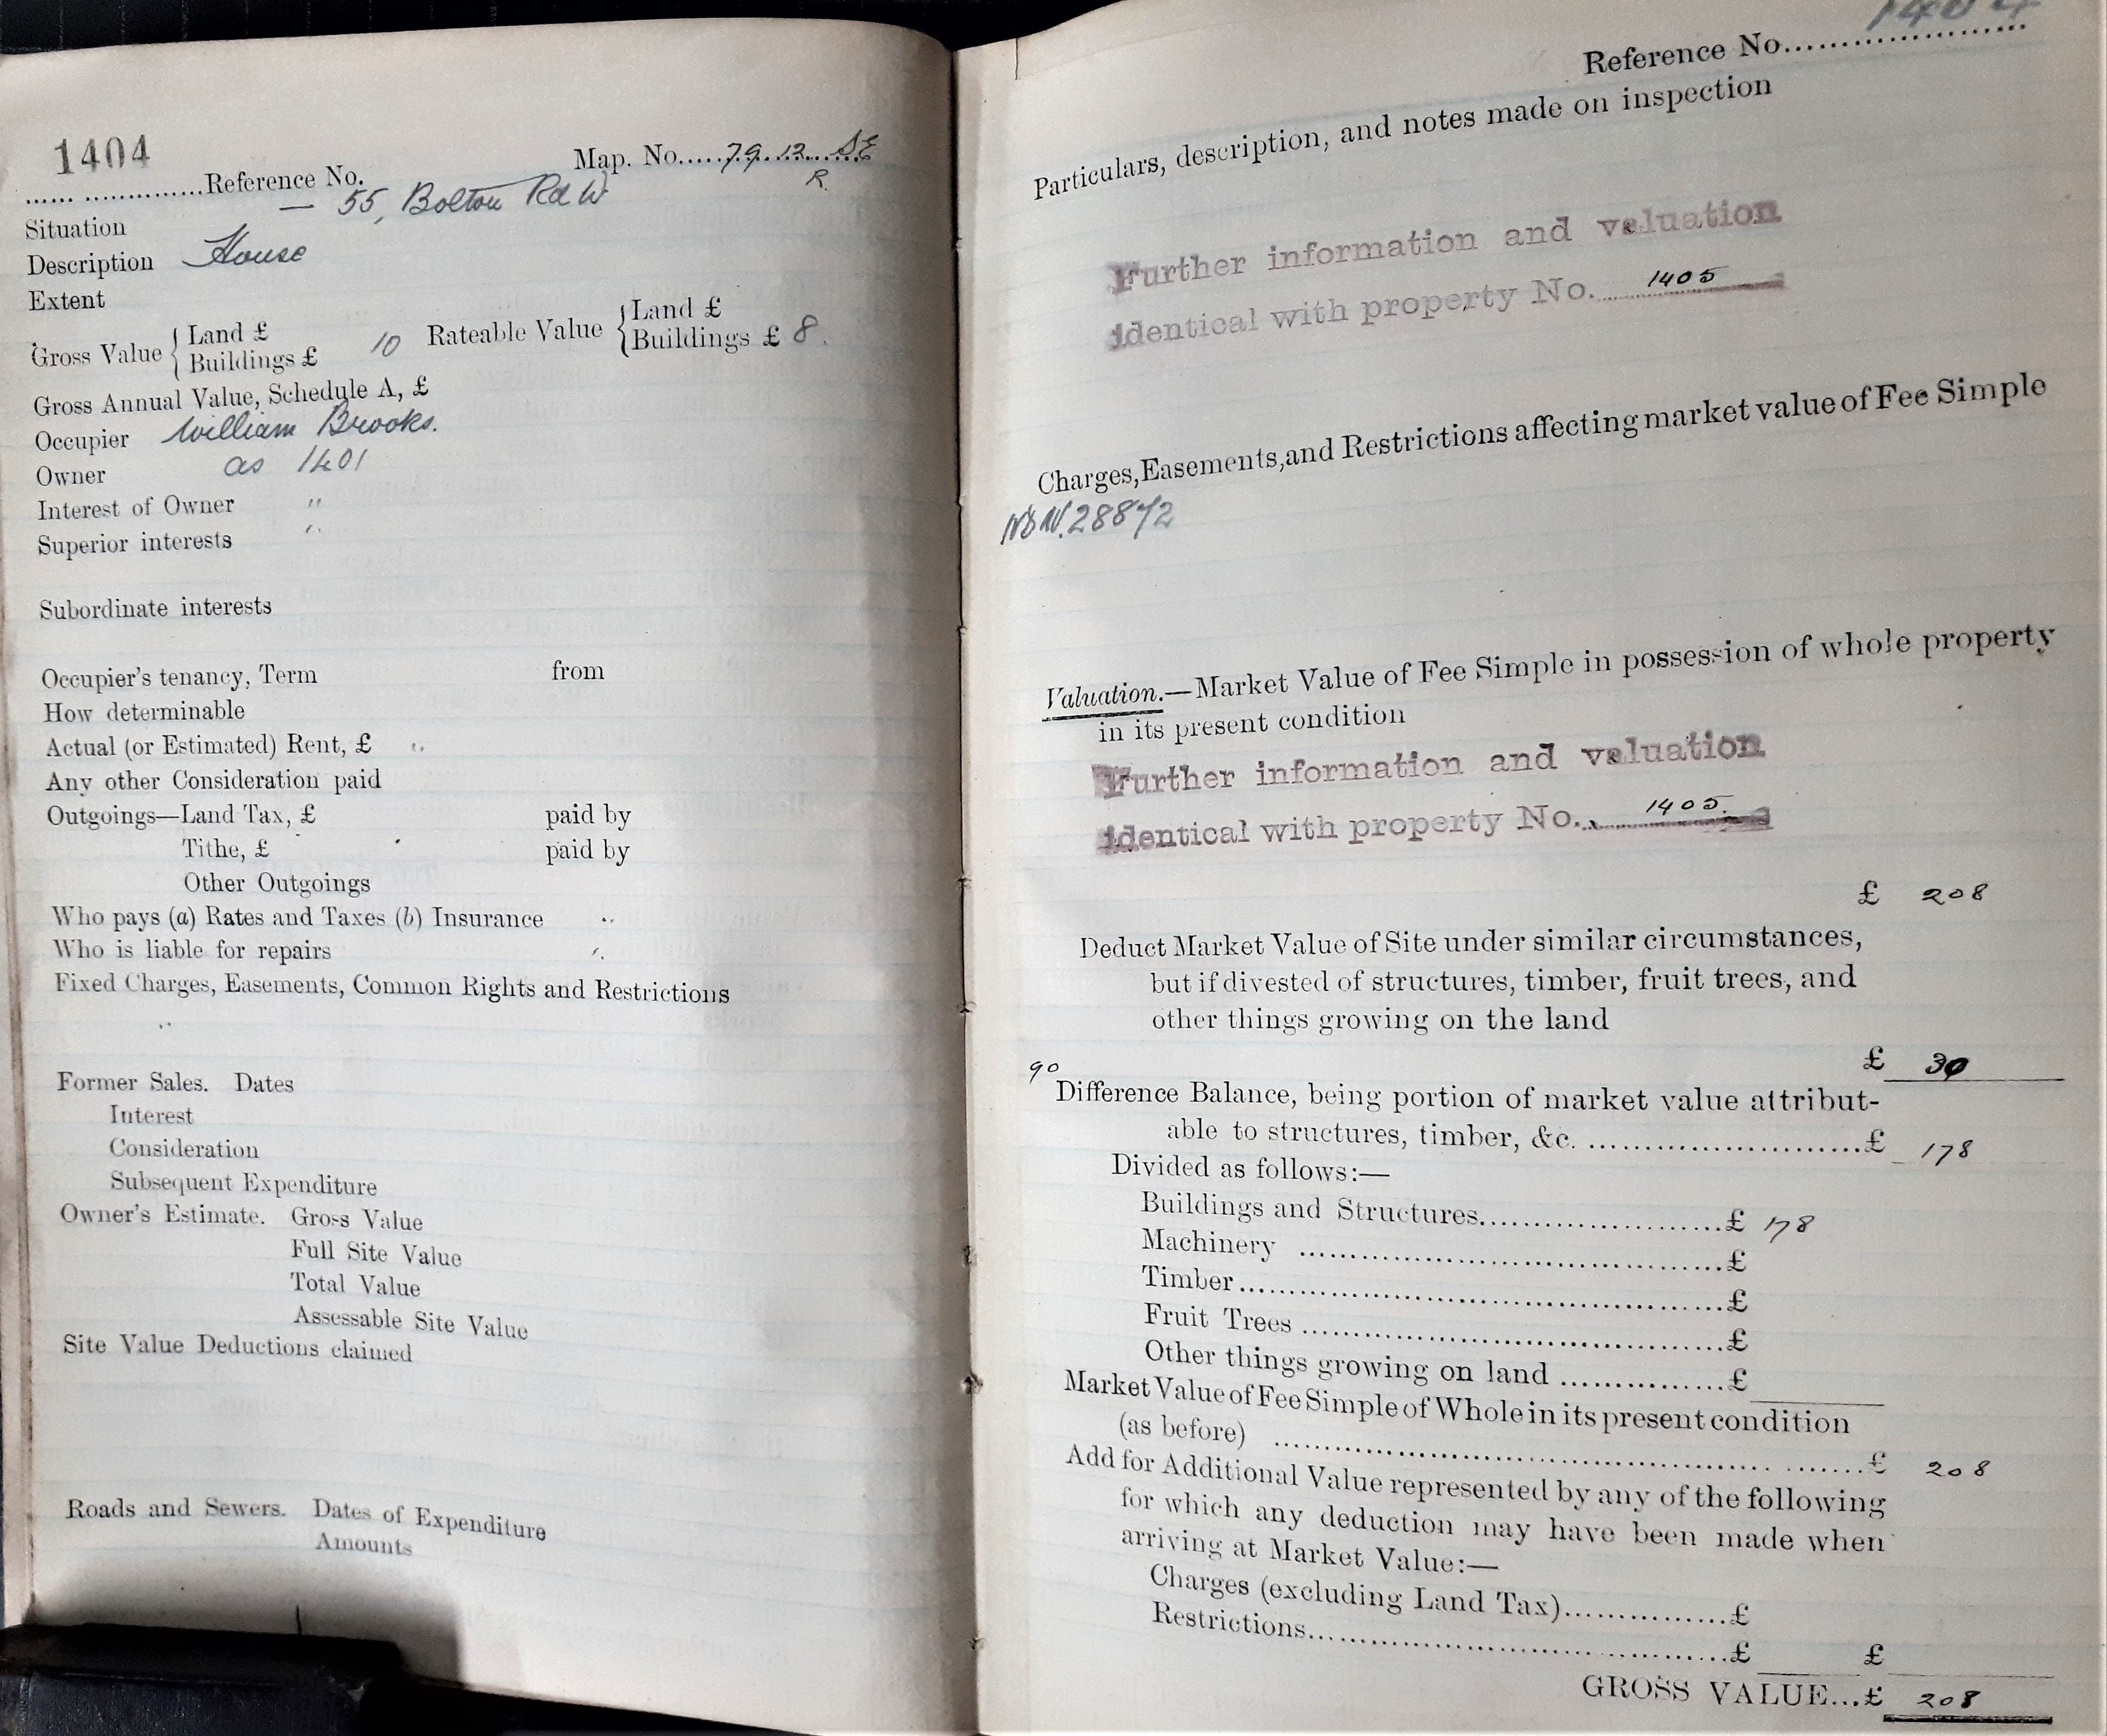 1404
Reference No. Map. No. 79.12 SE
R.
Situation — 55, Bolton Rd W
Description House
Extent
Gross Value { Land £ Rateable Value { Land £
Buildings £ 10 Buildings £ 8.
Gross Annual Value, Schedule A, £
Occupier William Brooks.
Owner as 1401
Interest of Owner "
Superior interests "
Subordinate interests
Occupier's tenancy, Term from
How determinable
Actual (or Estimated) Rent, £ "
Any other Consideration paid
Outgoings—Land Tax, £ paid by
Tithe, £ paid by
Other Outgoings
Who pays (a) Rates and Taxes (b) Insurance "
Who is liable for repairs "
Fixed Charges, Easements, Common Rights and Restrictions
"
Former Sales. Dates
Interest
Consideration
Subsequent Expenditure
Owner's Estimate. Gross Value
Full Site Value
Total Value
Assessable Site Value
Site Value Deductions claimed
Roads and Sewers. Dates of Expenditure
Amounts
1404
Reference No.
Particulars, description, and notes made on inspection
Further information and valuation
identical with property No. 1405
Charges, Easements, and Restrictions affecting market value of Fee Simple
Valuation.—Market Value of Fee Simple in possession of whole property
in its present condition
Further information and valuation
identical with property No. 1405.
£ 208
Deduct Market Value of Site under similar circumstances,
but if divested of structures, timber, fruit trees, and
other things growing on the land
90 £ 30
Difference Balance, being portion of market value attribut-
able to structures, timber, &c. £ 178
Divided as follows:—
Buildings and Structures £ 178
Machinery £
Timber £
Fruit Trees £
Other things growing on land £
Market Value of Fee Simple of Whole in its present condition
(as before) £ 208
Add for Additional Value represented by any of the following
for which any deduction may have been made when
arriving at Market Value:—
Charges (excluding Land Tax) £
Restrictions £ £
GROSS VALUE...£ 208